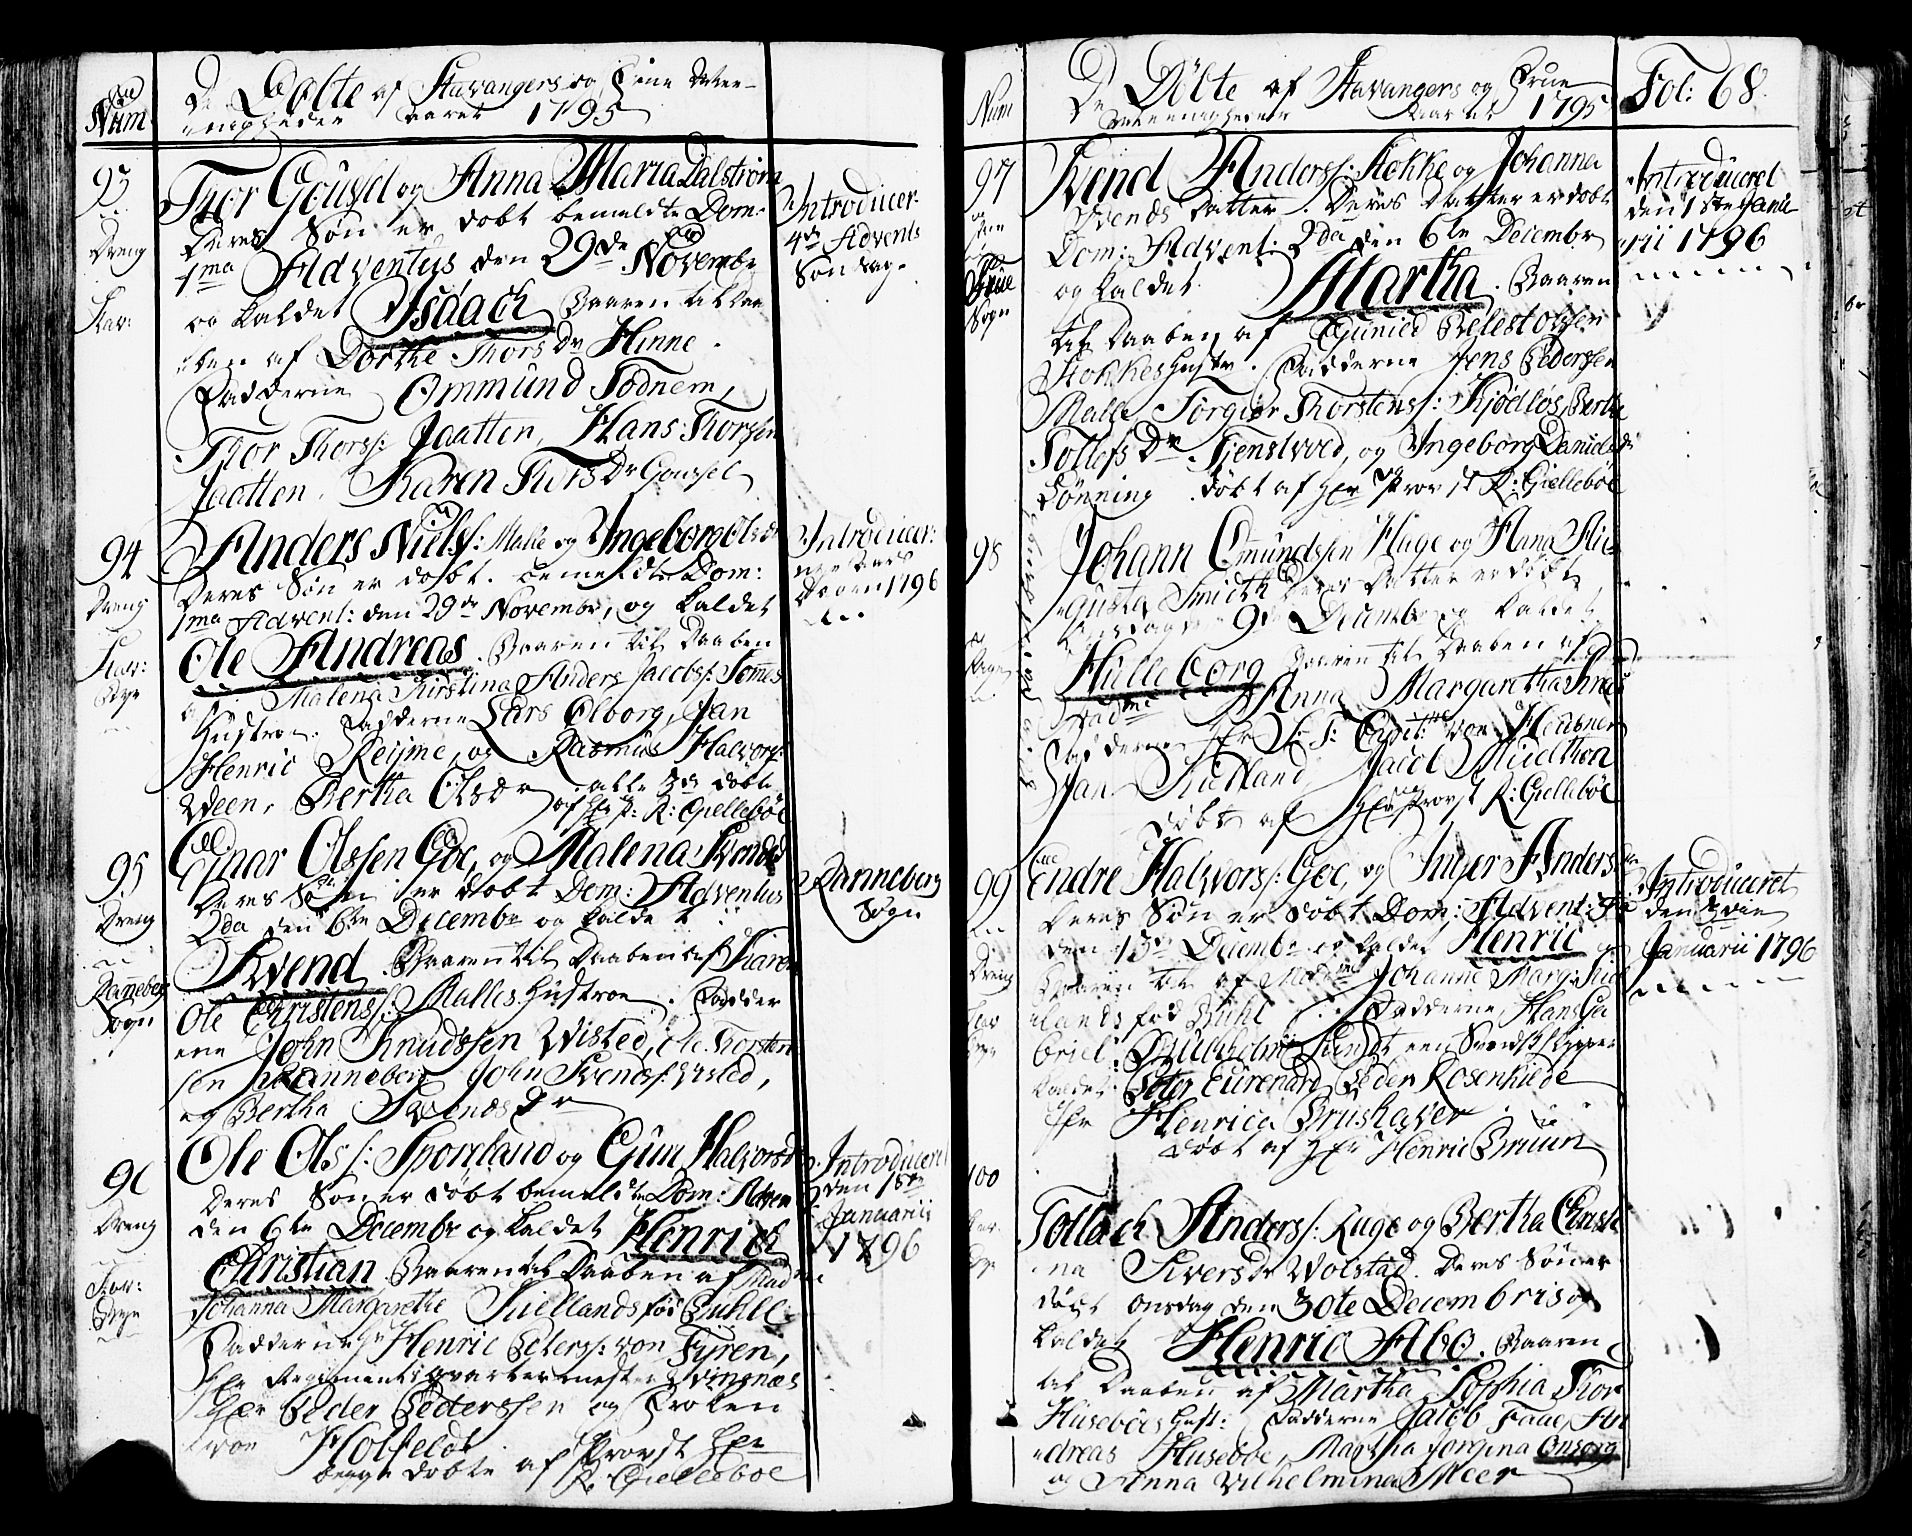 Num
De Döbte af Stavangers og Frue Mee-
nigheder Aaret 1795
93
Dreng
Stav:
Thor Gousel og Anna Maria Dalstrøm
Deres Søn er døbt bemeldte Dom:
1ma Adventus den 29de Novembr
og kaldet Isaach Baaren til Daa
ben af Dorthe Thors Dr Hinne.
Fadderne Ommund Todnem,
Thor Thorss: Jaatten, Hans Thorssen
Jaatten, Karen Thors Dr Gousel
Introducer:
4de Advents
Søndag.
94
Dreng
Stav:
Bye
Anders Niels: Malle og Ingeborg Olsdr
Deres Søn er døbt bemeldte Dom:
1ma Advent: den 29de Novembr, og kaldet
Ole Andreas. Baaren til Daaben
af Malena Kirstina Anders Jacobs:
Hustroe. Fadderne Lars Olborg, Jan
Henric Reijme, og Rasmus Halvors:
Weem, Bertha Olsdr alle 3de døbte
af Hr P: R: Gjellebøe
Introducer:
Dagen 1796
95
Dreng
Ranneberg
Sogn
Einar Olssen Goe, og Malena Svendsd
Deres Søn er døbt Dom: Adventus
2da den 6te Decembr og kaldet
Svend. Baaren til Daaben af Karen
Ole Christenss: Malles Hustroe. Fadder
ene John Knudssen Wisted, Ole Thorsten
sen Ranneberg John Svends: Wisted,
og Bertha Svends Dr
Ranneberg
Sogn
96
Dreng
Stav:
Bye
Ole Ols: Sporeland og Guri Halvorsd
Deres Søn er døbt bemeldte Dom: Adven
den 6te Decembr og kaldet Henrich
Christian. Baaren til Daaben af Mad
Johanna Margarethe Kiellands fød Buhll
Fadderne Hr Henric Peterss: von Fyren,
Hr Regimentsqvartermester
Hr Peder Pederssen og Frøken
von Holfeldt
begge døbte af Provst Hr
R. Gjellebøe
Introduceret
den 18de
Januarii
1796
Num
De Döbte af Stavangers og Frue
Meenigheder Aaret 1795
Fol: 68.
97
Frue
Sogn
Svend Anders: Stokke og Johanna
Svends Datter. Deres Datter er døbt
Dom: Advent: 2da den 6te Decembr
og kaldet Martha. Baaren
til Daaben af Gunild Velest
Stokkes Hustr. Fadderne Jens Pederssen
Malle, Torgier Thorstens: Kjöllös, Bertha
Tollefs Dr Tjenstvold, og Ingeborg Daniels
Dønning. Døbt af Hr Provst R: Gjellebøe
Introduceret
den 1ste Janu
arii 1796
98
Johann Omundssen Hage og Anna Au
gusta Smidth Deres Datter er døbt
9de Decembr og kaldet
Hilleborg Baaren til Daaben af
Madme Anna Margaretha
Fadderne Hr von Heusner
Jan Kielland, Jacob
Døbt af Hr Provst R: Gjellebøe
99
Dreng
Stav
Bye
Endre Halvors: Goe, og Inger Anders
Deres Søn er døbt Dom: Advent: 3tia
den 13de Decembr og kaldet Henric
Baaren til af Madme Johanne Marg: Kiel
lands fød Buhl Fadderne Hans Ga
briel: een Svensk Skipper
kaldet Peter Eurenard, Peder Rosenkilde
Hr Henrica Brushaver
Døbt af Hr Henric Bruun
Introduceret
den 3die
Januarii 1796
100
Stav:
Bye
Tollach Anders: Ruge og Bertha Christi
na Sivers Dr Wolstad. Deres Søn er
døbt Onsdag den 30te Decembris og
kaldet Henric Abo. Baaren
til Daaben af Martha Sophia Thor
Huseböes Hust: Fadderne Jacob Faae, An
dreas Huseboe, Martha Jorgina Onsorg
og Anna Vilhelmina Meer